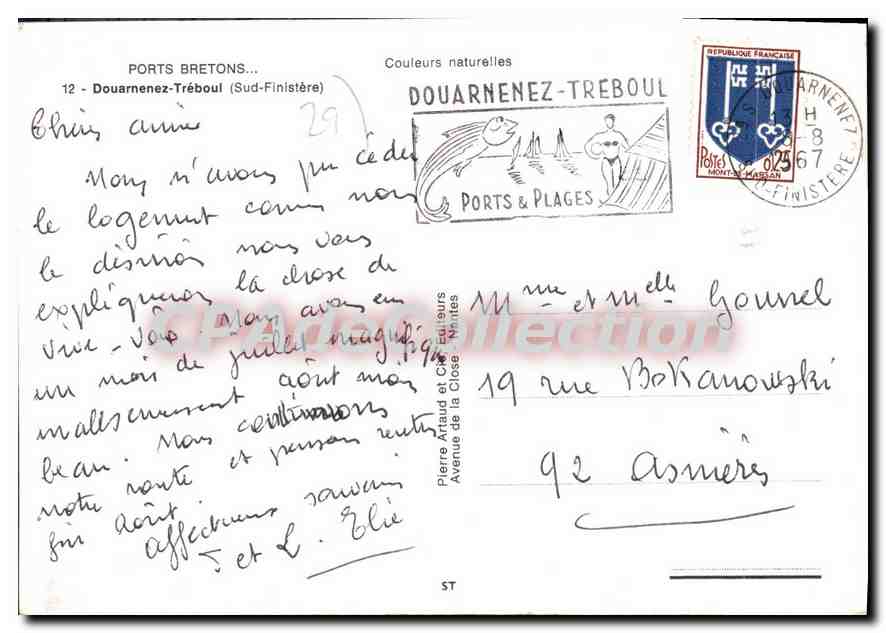 PORTS BRETONS...
12 - Douarnenez-Tréboul (Sud-Finistère)
Couleurs naturelles
29
Chères amies
Nous n'avons pu céder
le logement comme nous
le désirions nous vous
expliquerons la chose de
vive-voix. Nous avons eu
un mois de juillet magnifique
malheureusement août moins
beau. Nous continuons
notre route et pensons rentrer
fin août.
Affectueux souvenir
et L. Elie
DOUARNENEZ-TRÉBOUL
PORTS & PLAGES
REPUBLIQUE FRANÇAISE
POSTES
0,25
MONT-DE-MARSAN
DOUARNENEZ
13 H
8-8
1967
S-FINISTERE
Pierre Artaud et Cie Editeurs
Avenue de la Close - Nantes
Mme et Melle Gounel
19 rue BoKanowski
92 Asnières
ST
CPAdeCollection